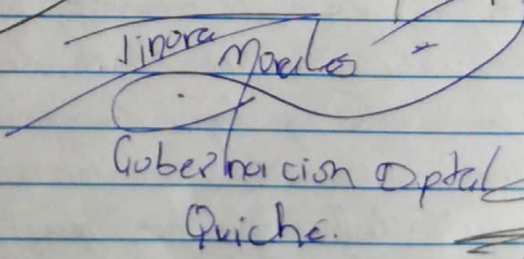 Jinora Morales
Gobernacion Dptal
Quiché.